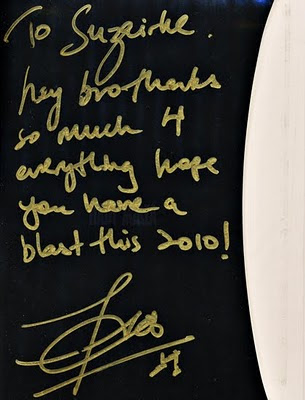 To Suzairhe.
hey bro thanks
so much 4
everything hope
you have a
blast this 2010!